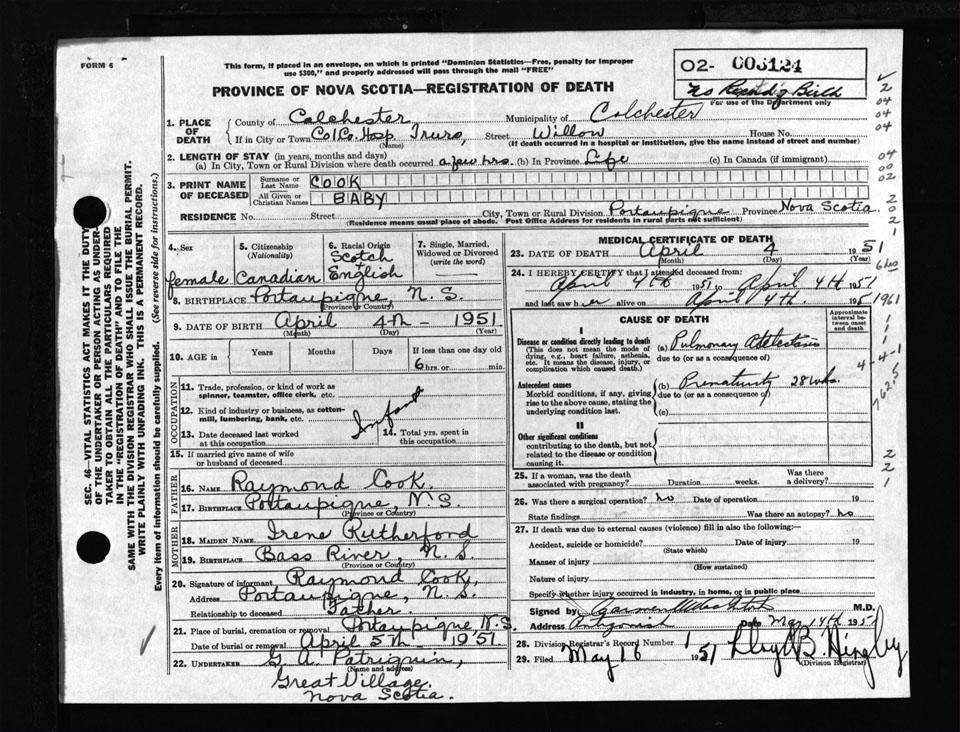 FORM 6
This form, if placed in an envelope, on which is printed "Dominion Statistics—Free, penalty for improper
use $300," and properly addressed will pass through the mail "FREE"
PROVINCE OF NOVA SCOTIA—REGISTRATION OF DEATH
02- 003124
No Record of Birth
For use of the Department only
1. PLACE OF DEATH
County of Colchester, Municipality of Colchester
If in City or Town Col Co. Hosp. Truro, Street Willow House No.
(Name) (If death occurred in a hospital or institution, give the name instead of street and number)
2. LENGTH OF STAY (in years, months and days)
(a) In City, Town or Rural Division where death occurred a few hrs. (b) In Province Life (c) In Canada (if immigrant)
3. PRINT NAME OF DECEASED
Surname or Last Name COOK
All Given or Christian Names BABY
RESIDENCE No. Street City, Town or Rural Division Portaupique Province Nova Scotia
(Residence means usual place of abode. Post Office Address for residents in rural parts not sufficient)
4. Sex
female
5. Citizenship
(Nationality)
Canadian
6. Racial Origin
Scotch + English
7. Single, Married, Widowed or Divorced
(write the word)
8. BIRTHPLACE Portaupique, N. S.
(Province or Country)
9. DATE OF BIRTH April 4th - 1951
(Month) (Day) (Year)
10. AGE in Years Months Days If less than one day old
6 hrs. or min.
OCCUPATION
11. Trade, profession, or kind of work as
spinner, teamster, office clerk, etc.
12. Kind of industry or business, as cotton-
mill, lumbering, bank, etc.
Infant
13. Date deceased last worked
at this occupation
14. Total yrs. spent in
this occupation
15. If married give name of wife
or husband of deceased
FATHER
16. NAME Raymond Cook.
17. BIRTHPLACE Portaupique N. S.
(Province or Country)
MOTHER
18. MAIDEN NAME Irene Rutherford
19. BIRTHPLACE Bass River, N. S.
(Province or Country)
20. Signature of informant Raymond Cook,
Address Portaupique, N. S.
Relationship to deceased Father.
21. Place of burial, cremation or removal Portaupique N.S.
Date of burial or removal April 5th 1951.
22. UNDERTAKER G. A. Patriquin,
(Name and address)
Great Village.
Nova Scotia.
MEDICAL CERTIFICATE OF DEATH
23. DATE OF DEATH April 4 1951
(Month) (Day) (Year)
24. I HEREBY CERTIFY that I attended deceased from:
April 4th 1951 to April 4th 1951
and last saw her alive on April 4th. 195
CAUSE OF DEATH
Approximate interval between onset and death
I
Disease or condition directly leading to death
(This does not mean the mode of
dying, e.g., heart failure, asthenia,
etc. It means the disease, injury, or
complication which caused death.)
(a) Pulmonary Atelectasis
due to (or as a consequence of)
Antecedent causes
Morbid conditions, if any, giving
rise to the above cause, stating the
underlying condition last.
(b) Prematurity 28 wks.
due to (or as a consequence of)
(c)
II
Other significant conditions
contributing to the death, but not
related to the disease or condition
causing it.
25. If a woman, was the death
associated with pregnancy? Duration weeks. Was there a delivery?
26. Was there a surgical operation? no Date of operation 19
State findings Was there an autopsy? no
27. If death was due to external causes (violence) fill in also the following:—
Accident, suicide or homicide? Date of injury 19
(State which)
Manner of injury
(How sustained)
Nature of injury
Specify whether injury occurred in industry, in home, or in public place
Signed by M.D.
Address Date May 14th 1951
28. Division Registrar's Record Number 1
29. Filed May 16 1951 Lloyd B. Hingley
(Division Registrar)
2
04
04
04
04
00
02
2
0
2
1
6 hrs
1961
1
1
1
4-4-1
762.5
2
2
1
SEC. 46—VITAL STATISTICS ACT MAKES IT THE DUTY
OF THE UNDERTAKER OR PERSON ACTING AS UNDER-
TAKER TO OBTAIN ALL THE PARTICULARS REQUIRED
IN THE "REGISTRATION OF DEATH" AND TO FILE THE
SAME WITH THE DIVISION REGISTRAR WHO SHALL ISSUE THE BURIAL PERMIT.
WRITE PLAINLY WITH UNFADING INK. THIS IS A PERMANENT RECORD.
Every item of information should be carefully supplied. (See reverse side for instructions.)